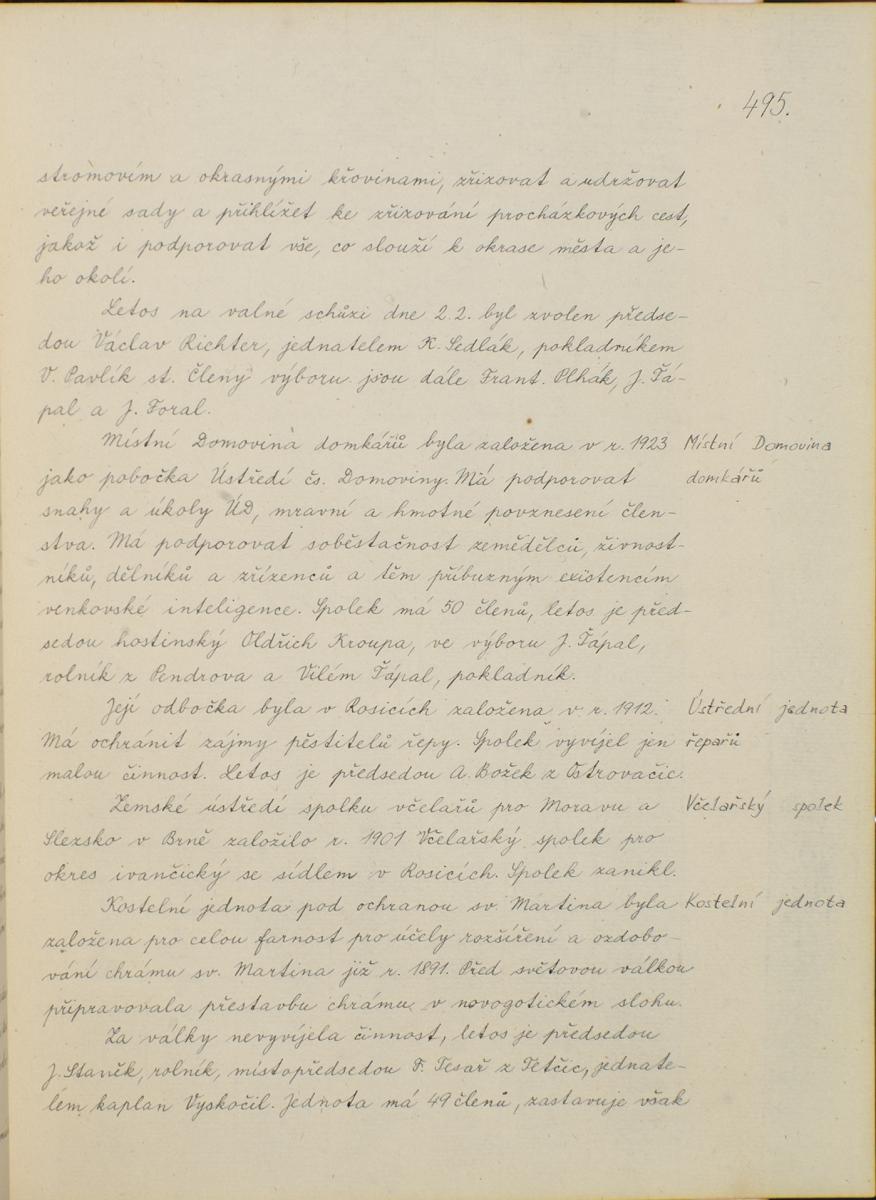 495.
stromovím a okrasnými křovinami, zřizovat a udržovat
veřejné sady a přihlížet ke zřizování procházkových cest,
jakož i podporovat vše, co slouží k okrase města a je-
ho okolí.
Letos na valné schůzi dne 2.2. byl zvolen předse-
dou Václav Richter, jednatelem K. Sedlák, pokladníkem
V. Pavlík st. Členy výboru jsou dále Frant. Plhák, J. Ťá-
pal a J. Foral.
Místní Domovina domkářů byla založena v r. 1923
Místní Domovina
jako pobočka Ústředí čs. Domoviny. Má podporovat
domkářů
snahy a úkoly ÚD, mravní a hmotné povznesení člen-
stva. Má podporovat soběstačnost zemědělců, živnost-
níků, dělníků a zřízenců a těm příbuzným existencím
venkovské inteligence. Spolek má 50 členů, letos je před-
sedou hostinský Oldřich Kroupa, ve výboru J. Ťápal,
rolník z Pendrova a Vilém Ťápal, pokladník.
Její odbočka byla v Rosicích založena v r. 1912.
Ústřední jednota
Má ochránit zájmy pěstitelů řepy. Spolek vyvíjel jen
řepařů
malou činnost. Letos je předsedou A. Božek z Ostrovačic.
Zemské ústředí spolku včelařů pro Moravu a
Včelařský spolek
Slezsko v Brně založilo r. 1901 Včelařský spolek pro
okres ivančický se sídlem v Rosicích. Spolek zanikl.
Kostelní jednota pod ochranou sv. Martina byla
Kostelní jednota
založena pro celou farnost pro účely rozšíření a ozdobo-
vání chrámu sv. Martina již r. 1891. Před světovou válkou
připravovala přestavbu chrámu v novogotickém slohu.
Za války nevyvíjela činnost, letos je předsedou
J. Staněk, rolník, místopředsedou F. Tesař z Tetčic, jednate-
lem kaplan Vyskočil. Jednota má 49 členů, zastavuje však